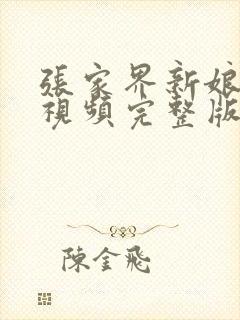 張家界新娘
視頻完整版
陳金飛